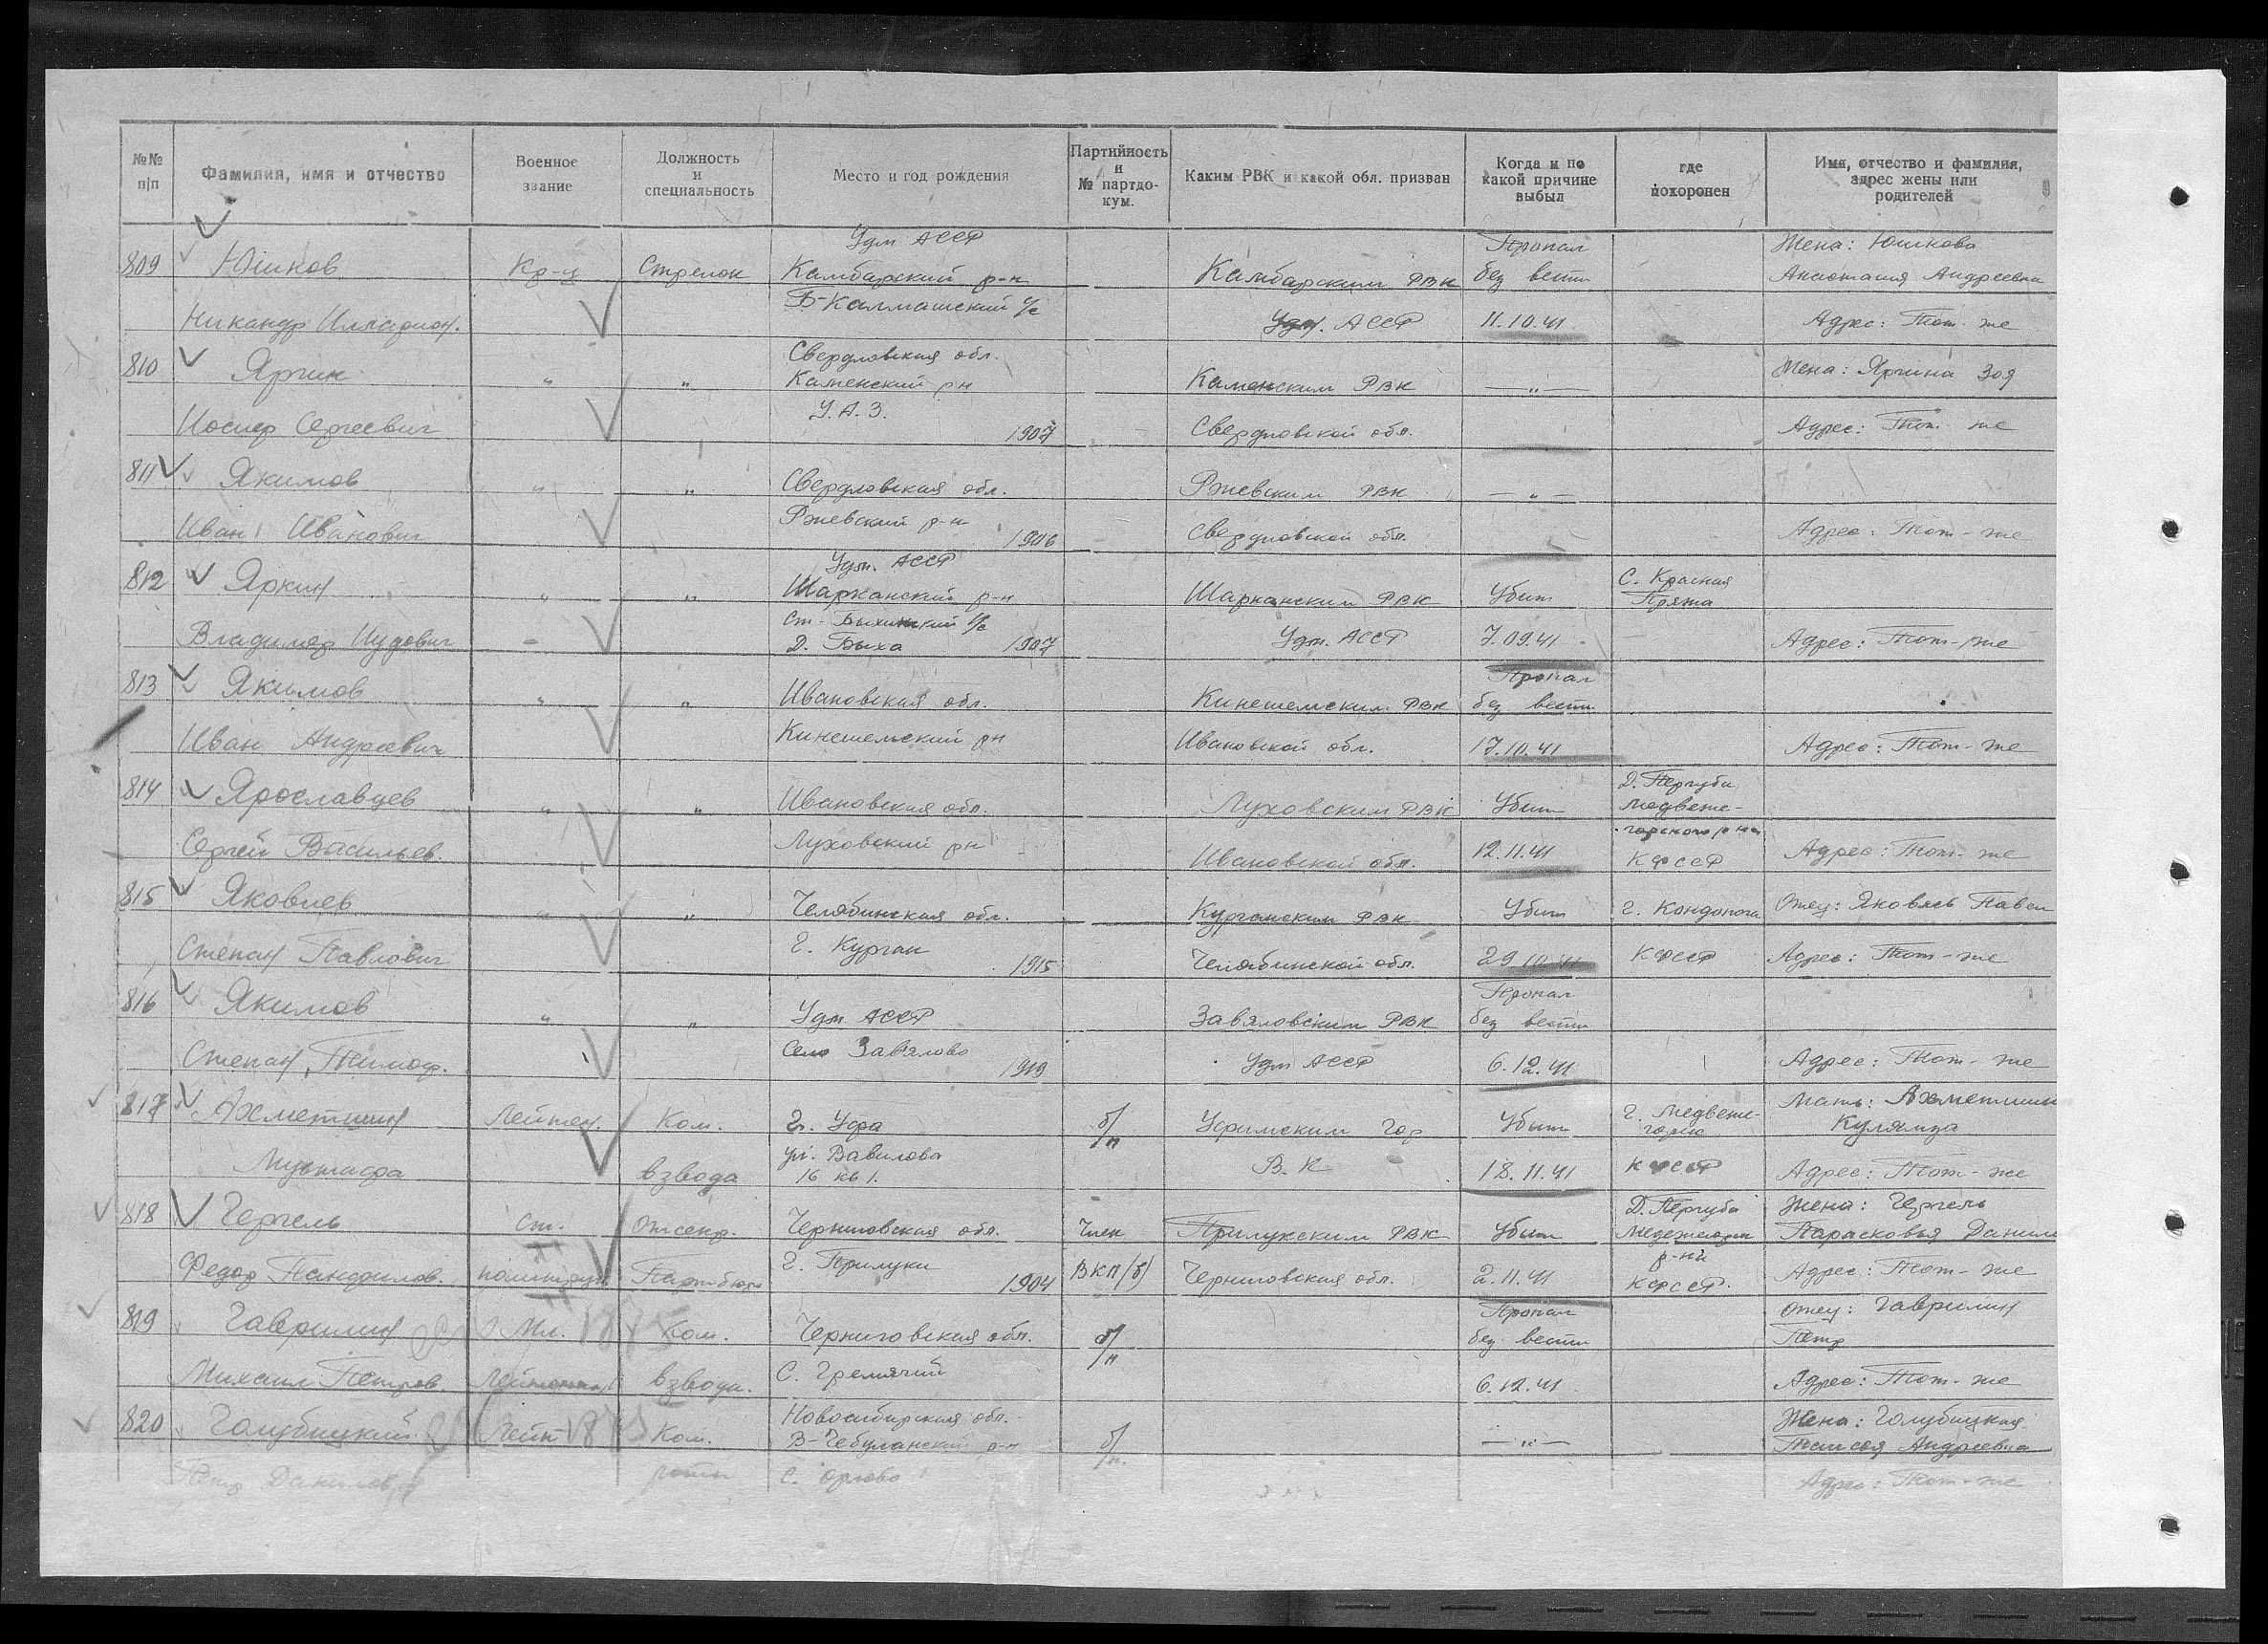 №№ п/п
Фамилия, имя и отчество
Военное звание
Должность и специальность
Место и год рождения
Партийность и № партдокум.
Каким РВК и какой обл. призван
Когда и по какой причине выбыл
где похоронен
Имя, отчество и фамилия, адрес жены или родителей
Удм АССР Пропал Жена: Юшкова
809 Юшков Кр-ц Стрелок Камбарский р-н Камбарским РВК без вести Анастасия Андреевна
Б-Калмашский с/с
Никандр Илларион. Удм. АССР 11.10.41 Адрес: Тот-же
Свердловская обл.
810 Яргин " " Каменский рн Каменским РВК —"— Жена: Яргина Зоя
У.А.З.
Иосиф Сергеевич 1907 Свердловской обл. Адрес: Тот же
811 Якимов " " Свердловская обл. Ржевским РВК —"—
Ржевский р-н
Иван Иванович 1906 Свердловской обл. Адрес: Тот-же
Удм. АССР С. Красная
812 Яркин " " Шарканский р-н Шарканским РВК Убит Пряжа
Ст-Быхинский с/с
Владимир Иудович Д. Быха 1907 Удм. АССР 7.09.41 Адрес: Тот-же
Пропал
813 Якимов " " Ивановская обл. Кинешемским РВК без вести
Иван Андреевич Кинешемский рн Ивановской обл. 17.10.41 Адрес: Тот-же
Д. Пергуба
814 Ярославцев " " Ивановская обл. Луховским РВК Убит Медвеже-
Луховский рн горского р-на
Сергей Васильев. Ивановской обл. 12.11.41 КФССР Адрес: Тот-же
815 Яковлев " " Челябинская обл. Курганским РВК Убит г. Кондопога Отец: Яковлев Павел
г. Курган
Степан Павлович 1915 Челябинской обл. 29.10.41 КФССР Адрес: Тот-же
Пропал
816 Якимов " " Удм АССР Завяловским РВК без вести
Село Завялово
Степан Тимоф. 1919 Удм АССР 6.12.41 Адрес: Тот-же
г. Медвеже- Мать: Ахметшин
817 Ахметшин Лейтен. Ком. г. Уфа б/п Уфимским Гор Убит горск
ул. Вавилова
Мустафа взвода 16 кв 1. В.К 18.11.41 КФССР Адрес: Тот-же
Д. Пергуба Жена: Гергель
818 Гергель Ст. Отсекр. Черниговская обл. Член Прилукским РВК Убит Парасковья Данил
г. Прилуки р-на
Федор Панфилов. политрук Партбюро 1904 ВКП/б/ Черниговская обл. 2.11.41 КФССР. Адрес: Тот-же
Пропал Отец: Гаврилин
819 Гаврилин Мл. Ком. Черниговская обл. б/п без вести Петр
с. Гремячий
Михаил Петров. Лейтенант взвода. 6.12.41 Адрес: Тот-же
Новосибирская обл. Жена: Голубицкая
820 Голубицкий Лейт Ком. В-Чебулинский р-н б/п. —"— Таисея Андреевна
Петр роты с. Орлово Адрес: Тот-же